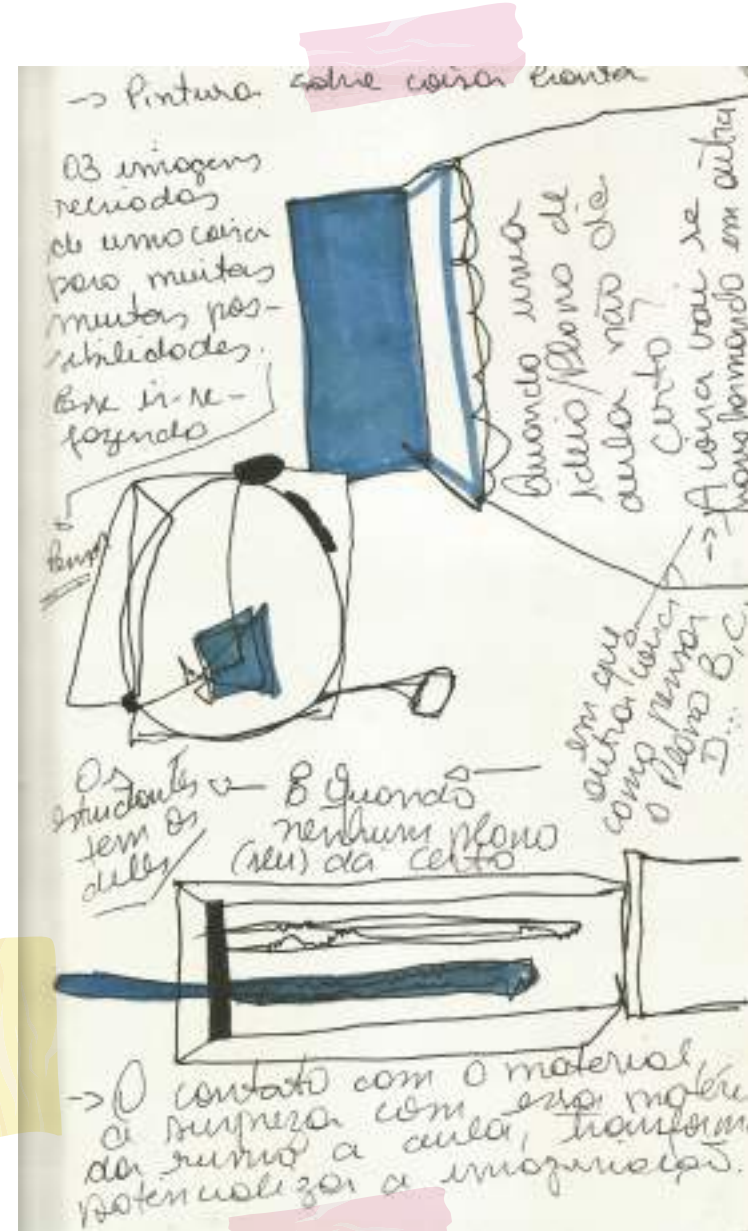 -> Pintura sobre coisa pronta
03 imagens
recriadas
de uma coisa
para muitas
muitas pos-
sibilidades.
Esse ir-re-
fazendo
Quando uma
ideia/Plano de
aula não dá
certo?
-> A coisa vai se
transformando em outra
em que
outra coisa
como pensar
o Plano B, C,
D...
Os
estudantes
tem os
deles
E Quando
nenhum plano
(seu) da certo
-> O contato com o material,
a surpresa com essa
da rumo a aula,
potencializa a imaginação.